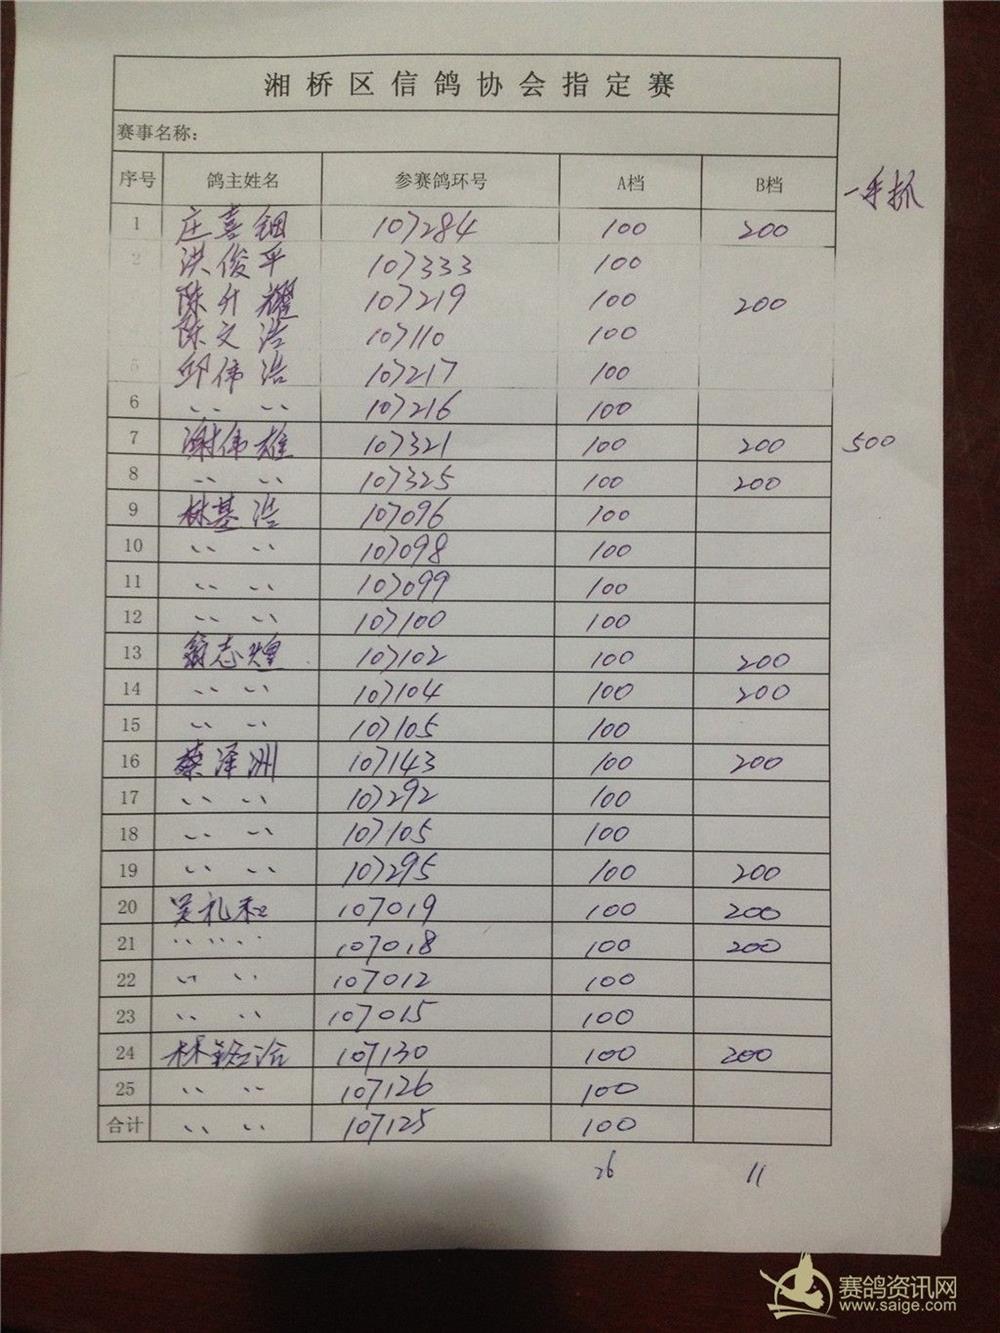 湘桥区信鸽协会指定赛
赛事名称:
序号 鸽主姓名 参赛鸽环号 A档 B档 一手抓
1 庄喜钿 107284 100 200
2 洪俊平 107333 100
陈升耀 107219 100 200
陈文浩 107110 100
5 邱伟浩 107217 100
6 〃 〃 107216 100
7 谢伟雄 107321 100 200 500
8 〃 〃 107325 100 200
9 林基浩 107096 100
10 〃 〃 107098 100
11 〃 〃 107099 100
12 〃 〃 107100 100
13 翁志煌 107102 100 200
14 〃 〃 107104 100 200
15 〃 〃 107105 100
16 蔡泽洲 107143 100 200
17 〃 〃 107292 100
18 〃 〃 107105 100
19 〃 〃 107295 100 200
20 吴礼和 107019 100 200
21 〃 〃 〃 107018 100 200
22 〃 〃 107012 100
23 〃 〃 107015 100
24 林 107130 100 200
25 〃 〃 107126 100
合计 〃 〃 107125 100
26 11
赛鸽资讯网
www.saige.com